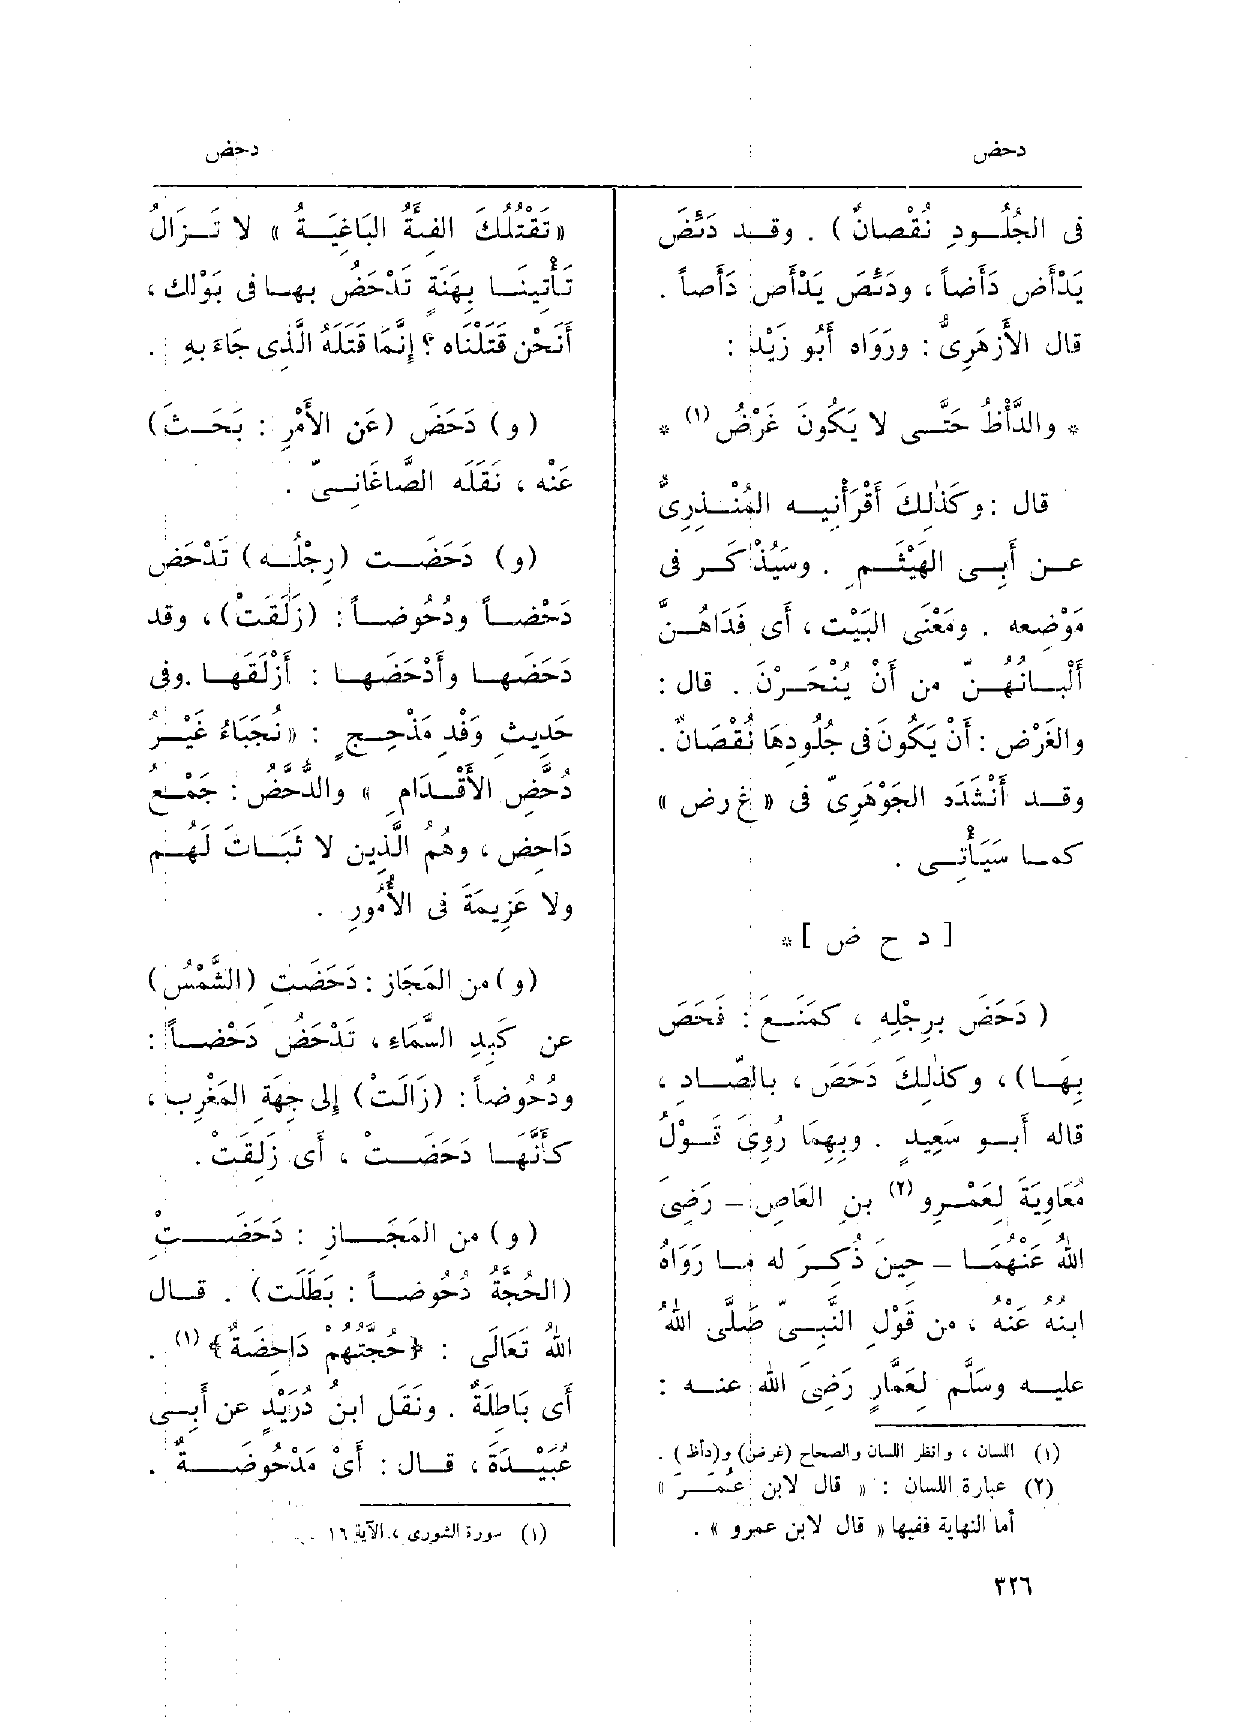 دحض
دحض
فى الجُلُودِ نُقْصانٌ ) . وقد دَئِضَ
يَدْأَض دَأَضاً ، ودَئِصَ يَدْأَص دَأَصاً .
قال الأَزهَرِىُّ : ورَوَاه أَبُو زَيْد :
* والدَّأْظُ حَتَّى لا يَكُونَ غَرْضُ (١) *
قال : وكَذٰلِكَ أَقْرَأَنِيه المُنْذِرِىُّ
عن أَبِى الهَيْثَمِ . وسَيُذْكَر فى
مَوْضِعه . ومَعْنَى البَيْت ، أَى فَدَاهُنَّ
أَلْبَانُهُنّ من أَنْ يُنْحَرْنَ . قال :
والغَرْض : أَنْ يَكُونَ فى جُلُودِهَا نُقْصَانٌ .
وقد أَنْشَدَه الجَوْهَرِىّ فى « غ رض »
كما سَيَأْتِى .
[ د ح ض ] *
( دَحَضَ بِرِجْلِهِ ، كمَنَعَ : فَحَصَ
بِهَا ) ، وكذٰلِكَ دَحَصَ ، بالصّاد ،
قاله أَبو سَعِيدٍ . وبِهِمَا رُوِىَ قَوْلُ
مُعَاوِيَةَ لِعَمْرِو (٢) بنِ العَاصِ – رَضِىَ
اللهُ عَنْهُمَا – حِينَ ذُكِرَ له ما رَوَاهُ
ابنُهُ عَنْهُ ، من قَوْلِ النَّبِىّ صَلَّى اللهُ
عليه وسَلَّم لِعَمَّارٍ رَضِىَ الله عنه :
(١) اللسان ، وانظر اللسان والصحاح (غرض) و(دأظ) .
(٢) عبارة اللسان : « قال لابن عُمَرَ »
أما النهاية ففيها « قال لابن عمرو » .
«تَقْتُلُكَ الفِئَةُ البَاغِيَةُ » لا تَزالُ
تَأْتِينَا بِهَنَةٍ تَدْحَضُ بها فى بَوْلك ،
أَنَحْن قَتَلْنَاه ؟ إِنَّمَا قَتَلَهُ الَّذِى جَاءَ بِهِ .
( و ) دَحَضَ (عَنِ الأَمْرِ : بَحَثَ )
عَنْه ، نَقَلَه الصَّاغَانِىّ .
(و) دَحَضَت (رِجْلُه ) تَدْحَض
دَحْضاً ودُحُوضاً : (زَلَقَتْ) ، وقد
دَحَضَها وأَدْحَضَها : أَزْلَقَها . وفى
حَدِيثِ وَفْدِ مَذْحِجٍ : «نُجَبَاءُ غَيْرُ
دُحَّضِ الأَقْدَامِ » والدُّحَّضُ : جَمْع
دَاحِض ، وهُمُ الَّذِين لا ثَبَاتَ لَهُم
ولا عَزِيمَةَ فى الأُمُورِ .
(و) من المَجَاز : دَحَضَتِ (الشَّمْسُ)
عن كَبِدِ السَّمَاءِ ، تَدْحَضُ دَحْضاً :
ودُحُوضاً : (زَالَتْ) إِلى جِهَةِ المَغْرِب ،
كأَنَّهَا دَحَضَت ، أَى زَلِقَتْ .
( و ) من المَجَازِ : دَحَضَتْ
(الحُجَّةُ دُحُوضاً : بَطَلَت) . قال
اللهُ تَعَالَى : ﴿حُجَّتُهُمْ دَاحِضَةٌ﴾ (١) .
أَى بَاطِلَةٌ . ونَقَل ابنُ دُرَيْدٍ عن أَبِى
عُبَيْدَةَ ، قال : أَىْ مَدْحُوضَةٌ .
(١) سورة الشورى ، الآية ١٦ .
٣٢٦